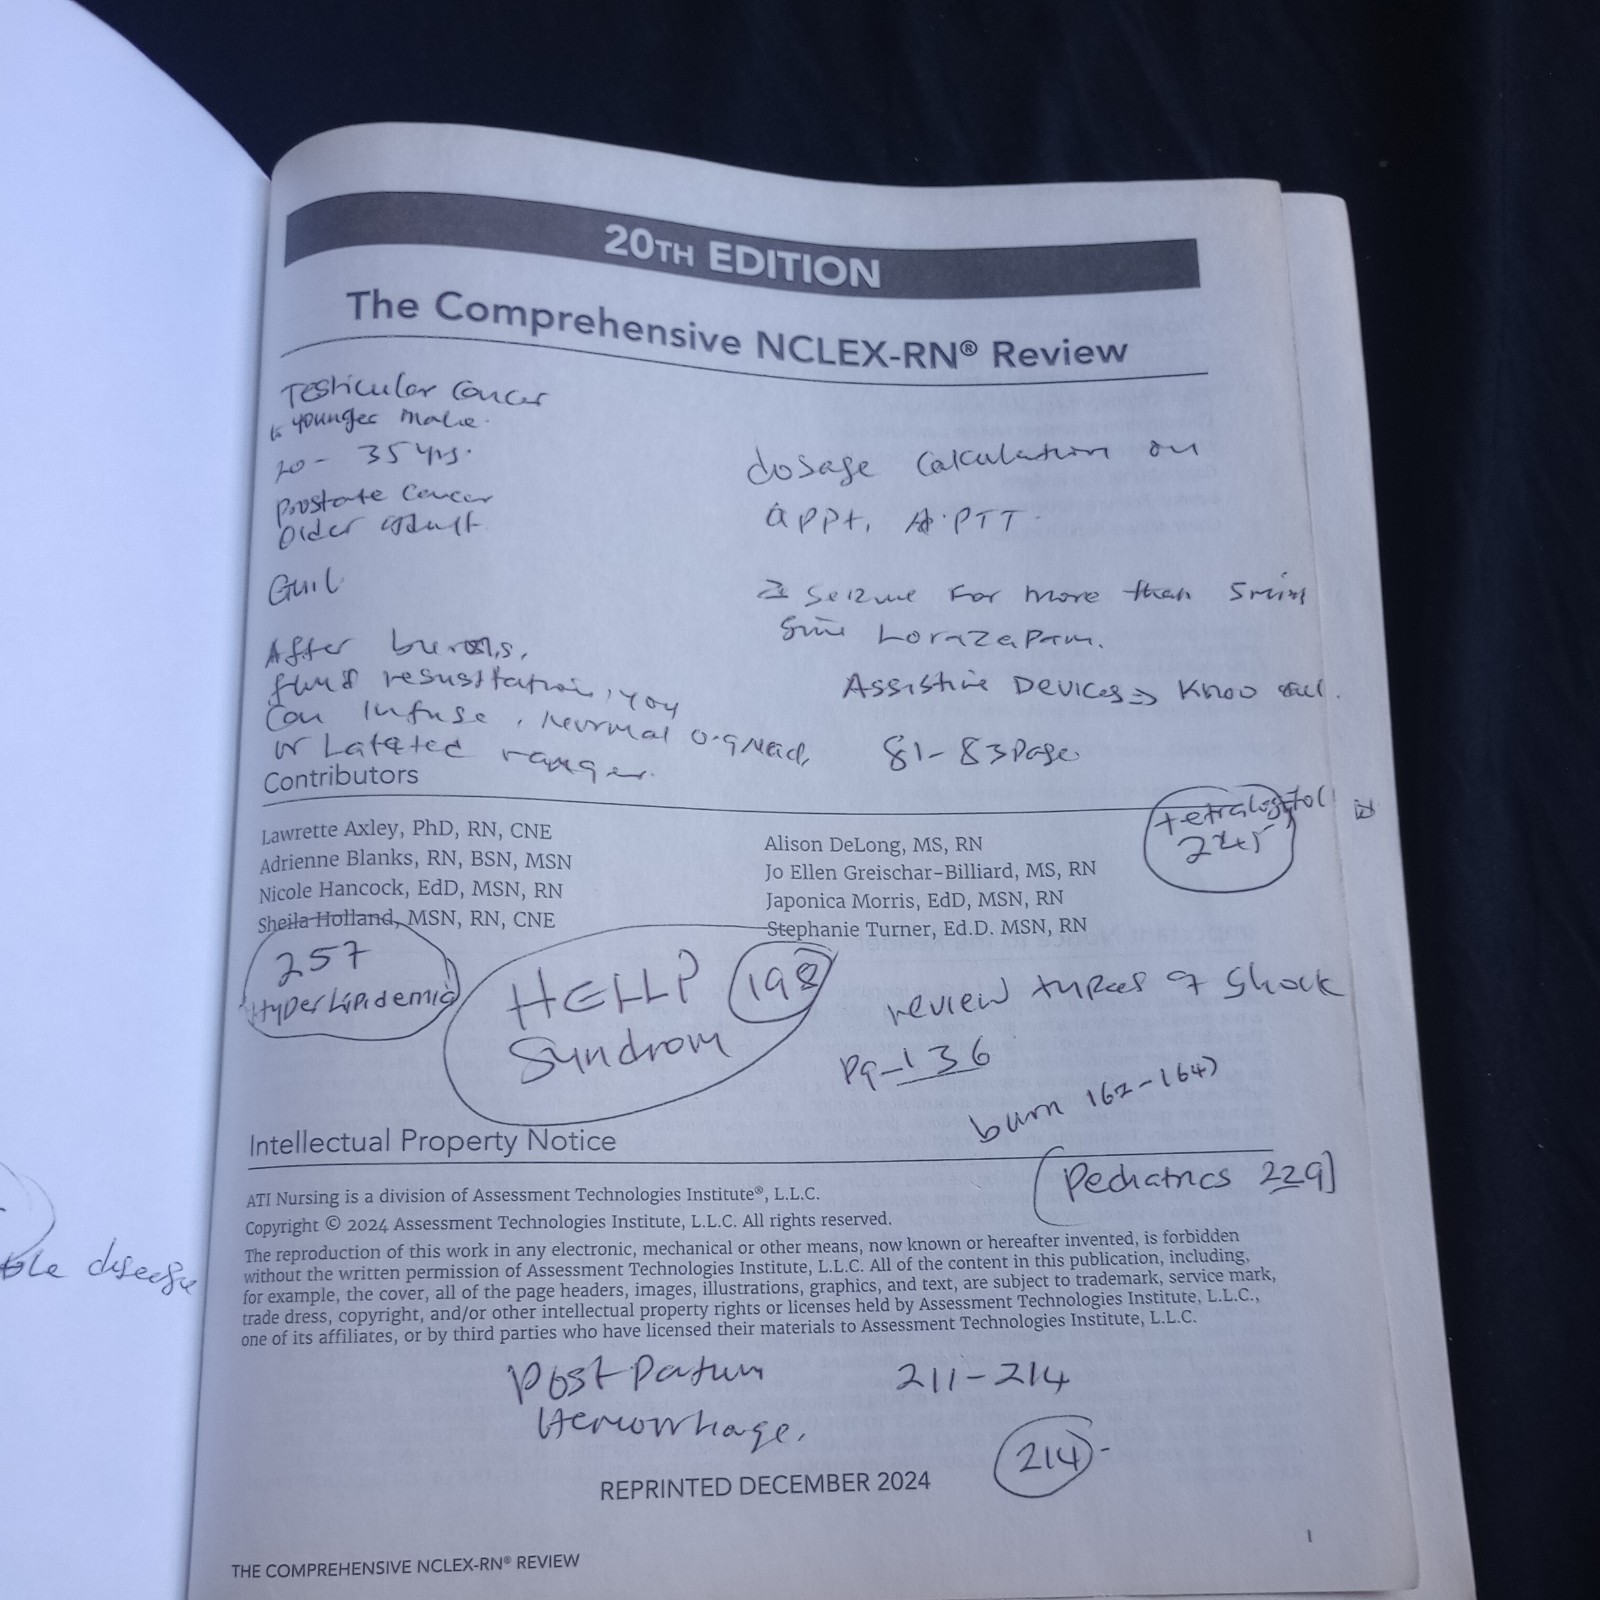 20TH EDITION
The Comprehensive NCLEX-RN® Review
Testicular Cancer
younger male.
20 - 35 yrs.
Prostate Cancer
Older adult.
Guil
After burns,
fluid resustation, you
Can Infuse, Normal
or Latated ranger.
dosage Calculation on
appt, A.PTT.
Seizure For more than 5mins
Give Lorazapam.
Assistive Devices => Know all.
81-83 page
Contributors
Lawrette Axley, PhD, RN, CNE
Adrienne Blanks, RN, BSN, MSN
Nicole Hancock, EdD, MSN, RN
Sheila Holland, MSN, RN, CNE
Alison DeLong, MS, RN
Jo Ellen Greischar-Billiard, MS, RN
Japonica Morris, EdD, MSN, RN
Stephanie Turner, Ed.D. MSN, RN
245
257
HyperLipidemia
HELLP 198
Syndrom
review types of Shock
Pg-136
burn 162-164)
Intellectual Property Notice
[Pediatrics 229]
ATI Nursing is a division of Assessment Technologies Institute®, L.L.C.
Copyright © 2024 Assessment Technologies Institute, L.L.C. All rights reserved.
The reproduction of this work in any electronic, mechanical or other means, now known or hereafter invented, is forbidden
without the written permission of Assessment Technologies Institute, L.L.C. All of the content in this publication, including,
for example, the cover, all of the page headers, images, illustrations, graphics, and text, are subject to trademark, service mark,
trade dress, copyright, and/or other intellectual property rights or licenses held by Assessment Technologies Institute, L.L.C.,
one of its affiliates, or by third parties who have licensed their materials to Assessment Technologies Institute, L.L.C.
ble disease
Post Partum 211-214
Hemorrhage.
214-
REPRINTED DECEMBER 2024
1
THE COMPREHENSIVE NCLEX-RN® REVIEW